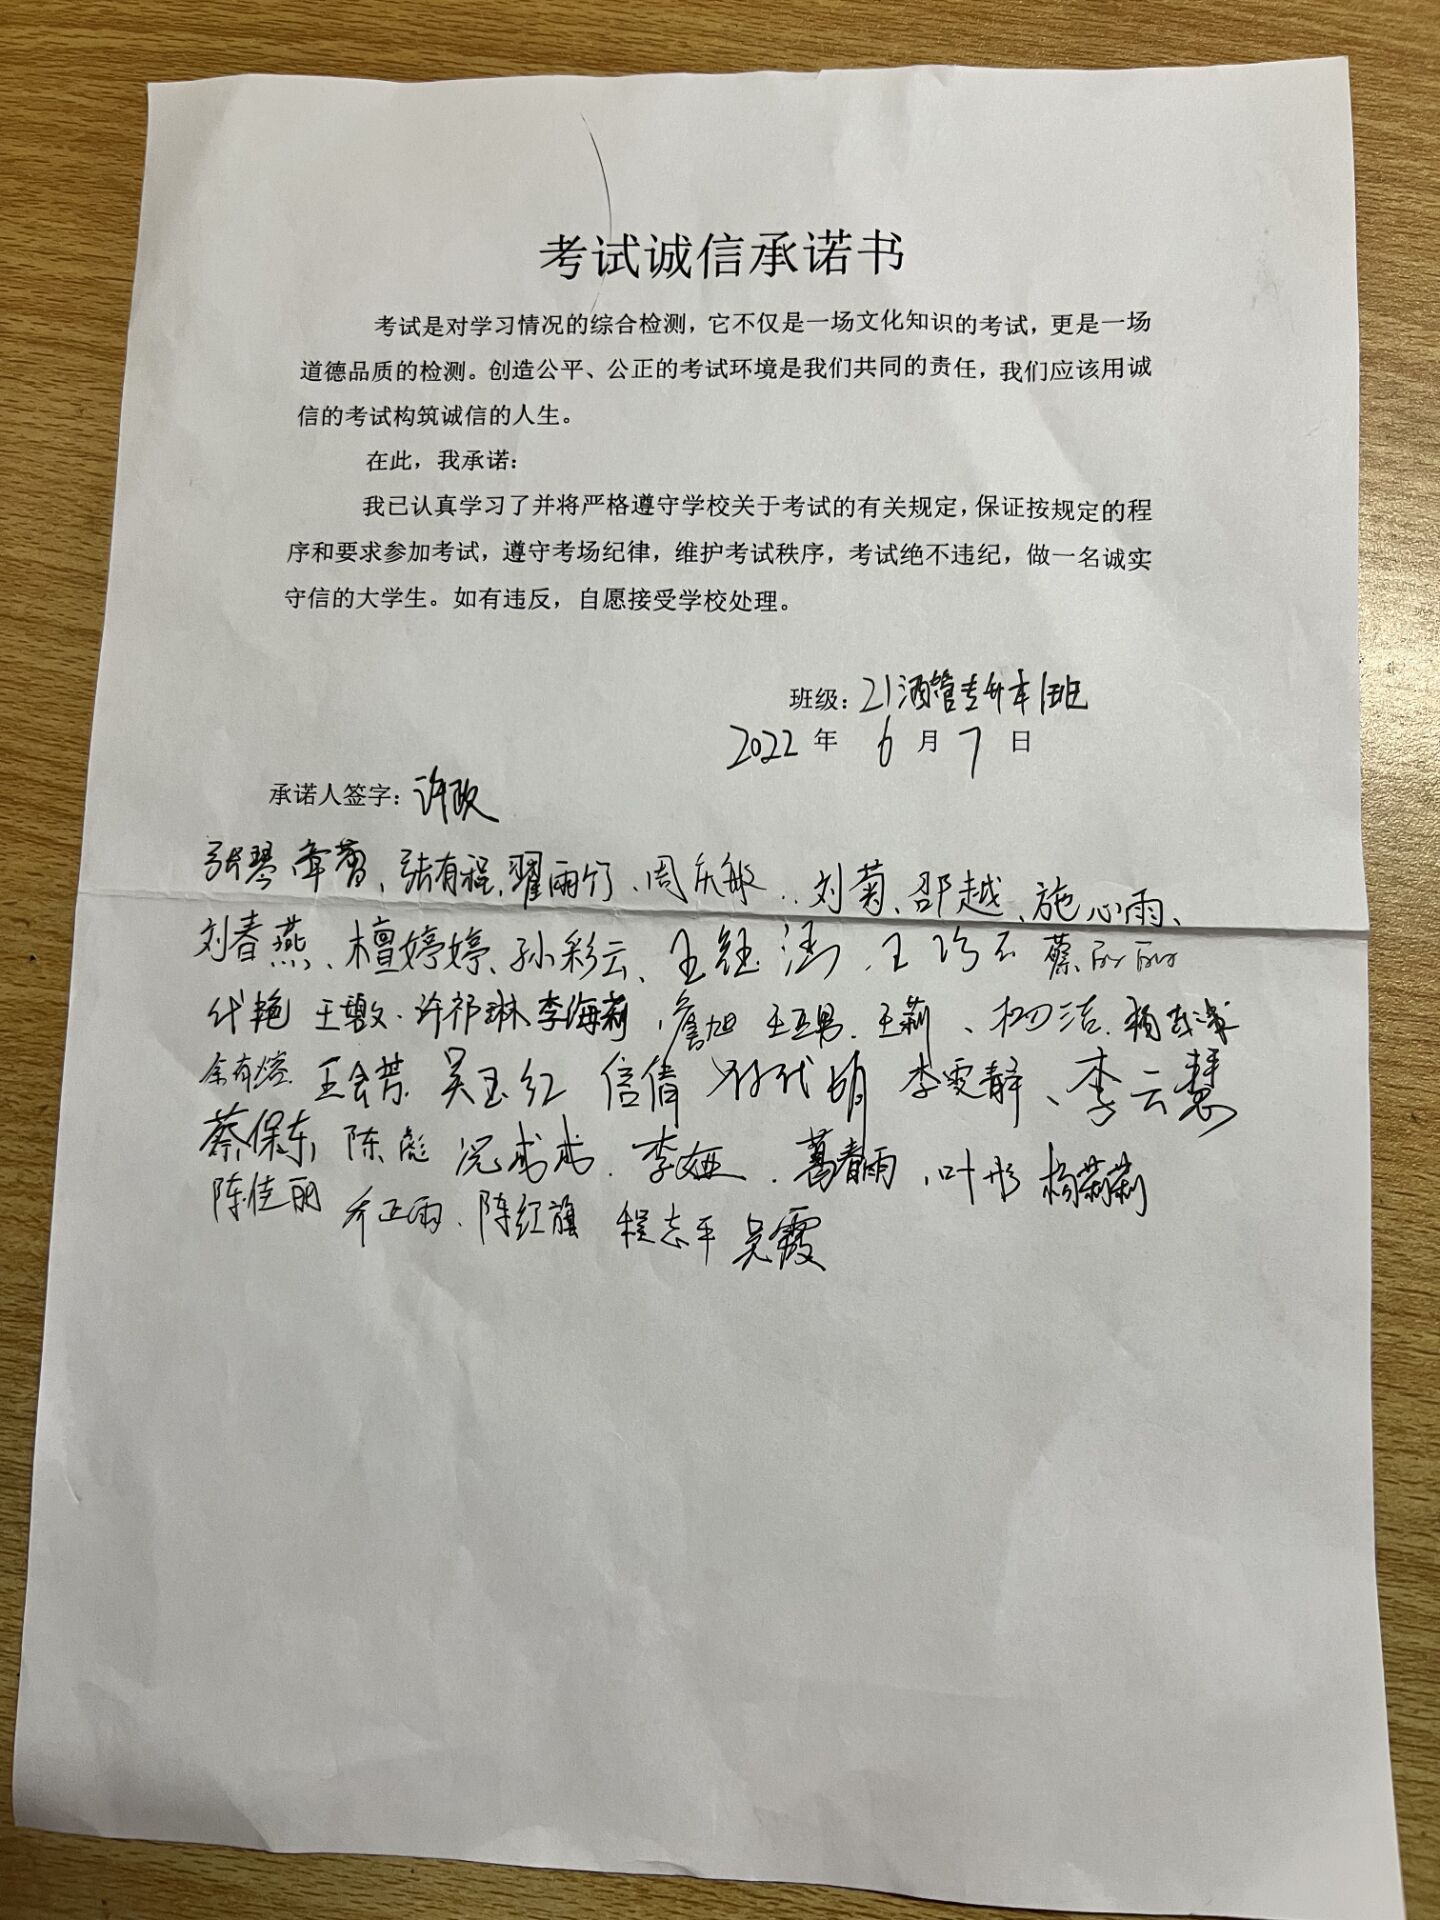 考试诚信承诺书
考试是对学习情况的综合检测，它不仅是一场文化知识的考试，更是一场
道德品质的检测。创造公平、公正的考试环境是我们共同的责任，我们应该用诚
信的考试构筑诚信的人生。
在此，我承诺：
我已认真学习了并将严格遵守学校关于考试的有关规定，保证按规定的程
序和要求参加考试，遵守考场纪律，维护考试秩序，考试绝不违纪，做一名诚实
守信的大学生。如有违反，自愿接受学校处理。
班级：21酒管专升本1班
2022年 6月7日
承诺人签字：许政
张琴 章蕾、张有程、翟雨竹、周庆敏、刘菊、邵越、施心雨、
刘春燕、檀婷婷、孙彩云、王钰涵、蔡丽丽
代艳 王璈、许祁琳 李海莉、詹旭 王亚男、王莉、
王会芳 吴玉红 信倩 孙代娟 李雯静、李云慧
蔡保东 陈彪 李娅、葛春雨、叶彤 杨莉莉
陈佳丽 乔正雨、陈红旗 程志平 吴霞